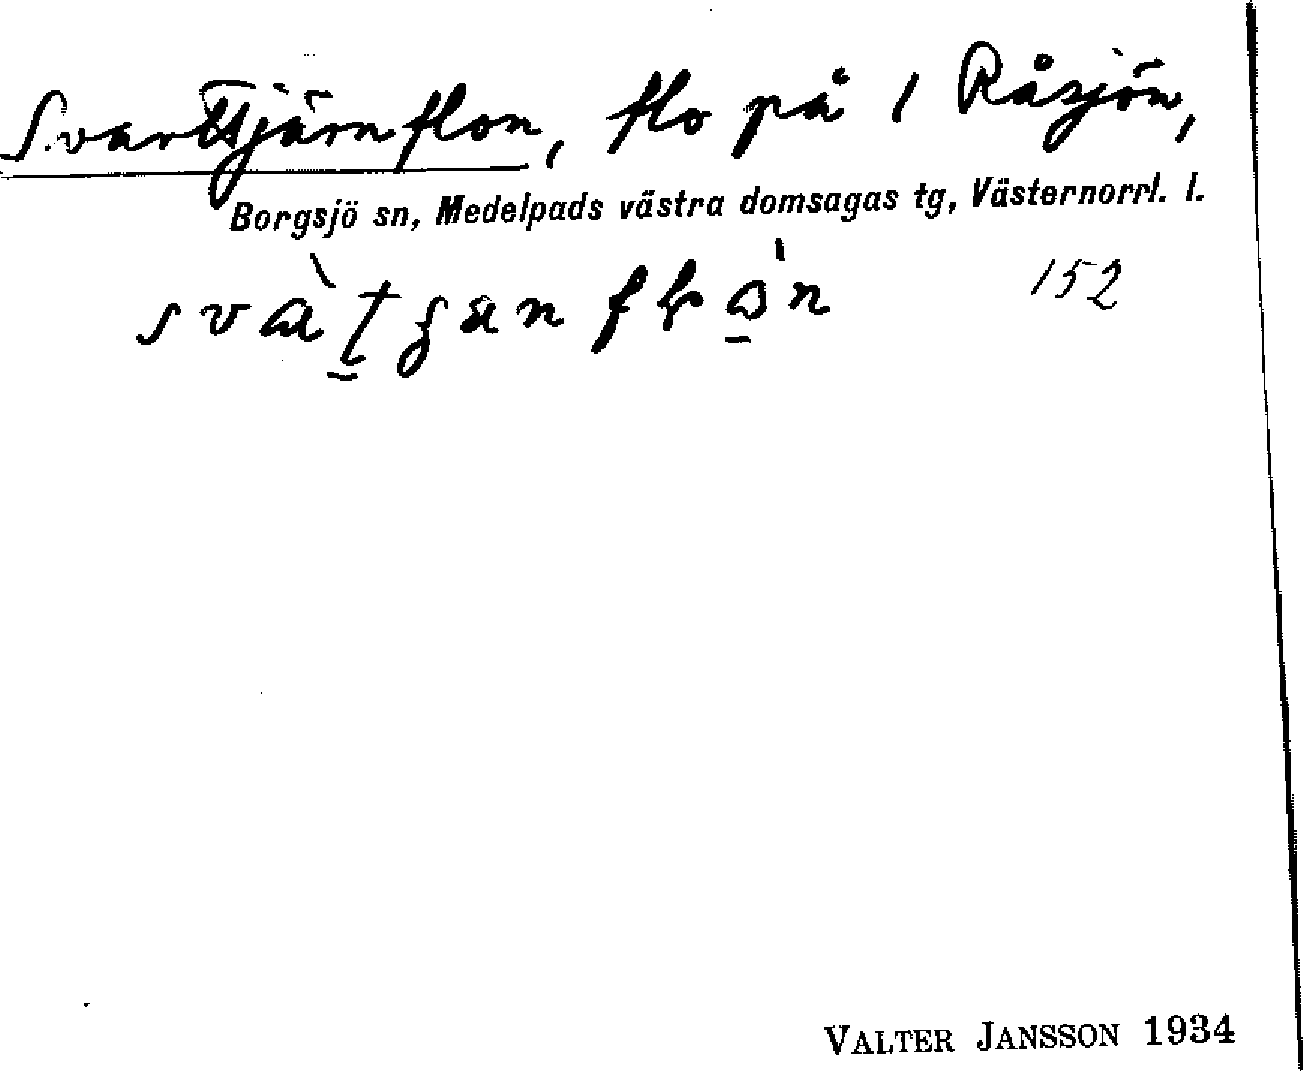 Svarttjärnflon, flo på 1 Råsjön,
Borgsjö sn, Medelpads västra domsagas tg, Västernorrl. l.
152
VALTER JANSSON 1934